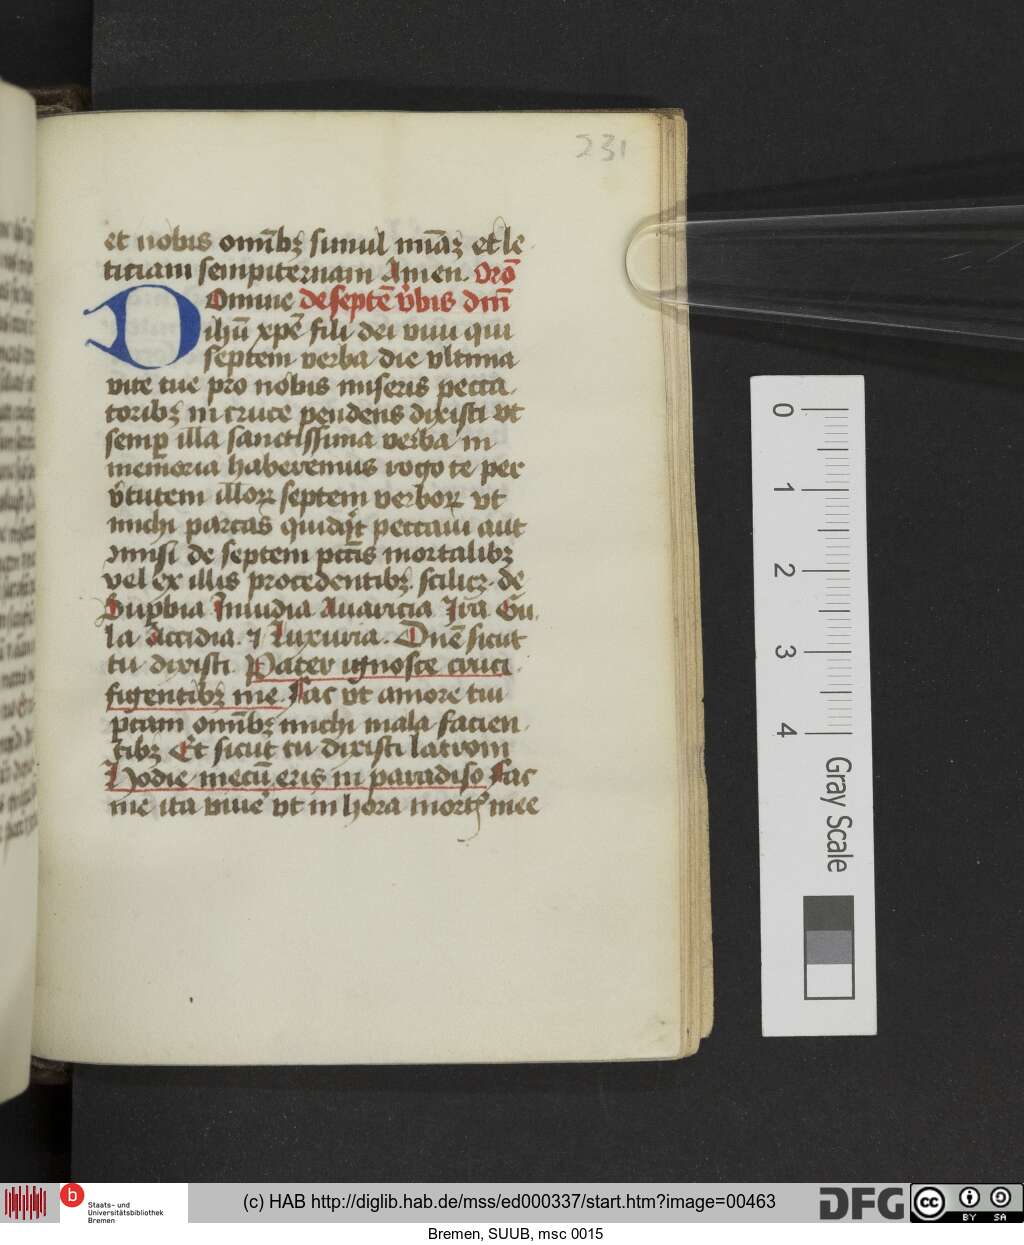 231
et nobis om̄ibꝫ simul mīaꝫ et le
titiam sempiternam Amen. Orō
Domine de septē v̓bis dm̄
ihū xp̄e fili dei viui qui
septem verba die vltima
vite tue pro nobis miseris pecca
toribꝫ in cruce pendens dixisti vt
semꝑ illa sanctissima verba in
memoria haberemus rogo te per
v̓tutem illoꝝ septem verboꝝ vt
michi parcas quidqͥt peccaui aut
omisi de septem pctīs mortalibꝫ
vel ex illis procedentibꝫ. scilicꝫ de
Suꝑbia Inuidia Auaricia Ira Gu
la Accidia. ⁊ Luxuria. Dnē sicut
tu dixisti Pater ignosce cruci
figentibꝫ me Fac vt amore tui
ꝑcam om̄ibꝫ michi mala facien
tibꝫ Et sicut tu dixisti latroni
Hodie mecū eris in paradiso Fac
me ita viue᷑ vt in hora mortꝭ mee
0
1
2
3
4
Gray Scale
b
Staats- und
Universitätsbibliothek
Bremen
(c) HAB http://diglib.hab.de/mss/ed000337/start.htm?image=00463
DFG
cc
BY SA
Bremen, SUUB, msc 0015